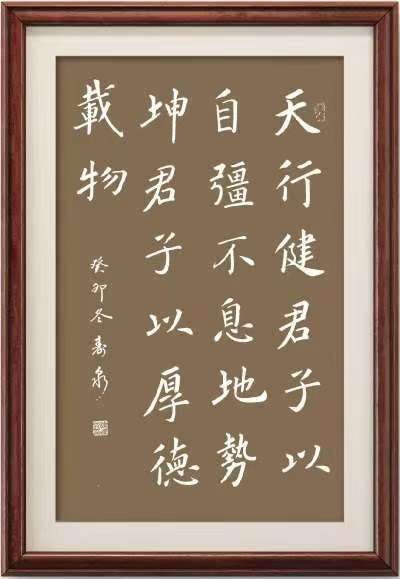 天行健君子以
自彊不息地勢
坤君子以厚德
載物
癸卯冬壽泉